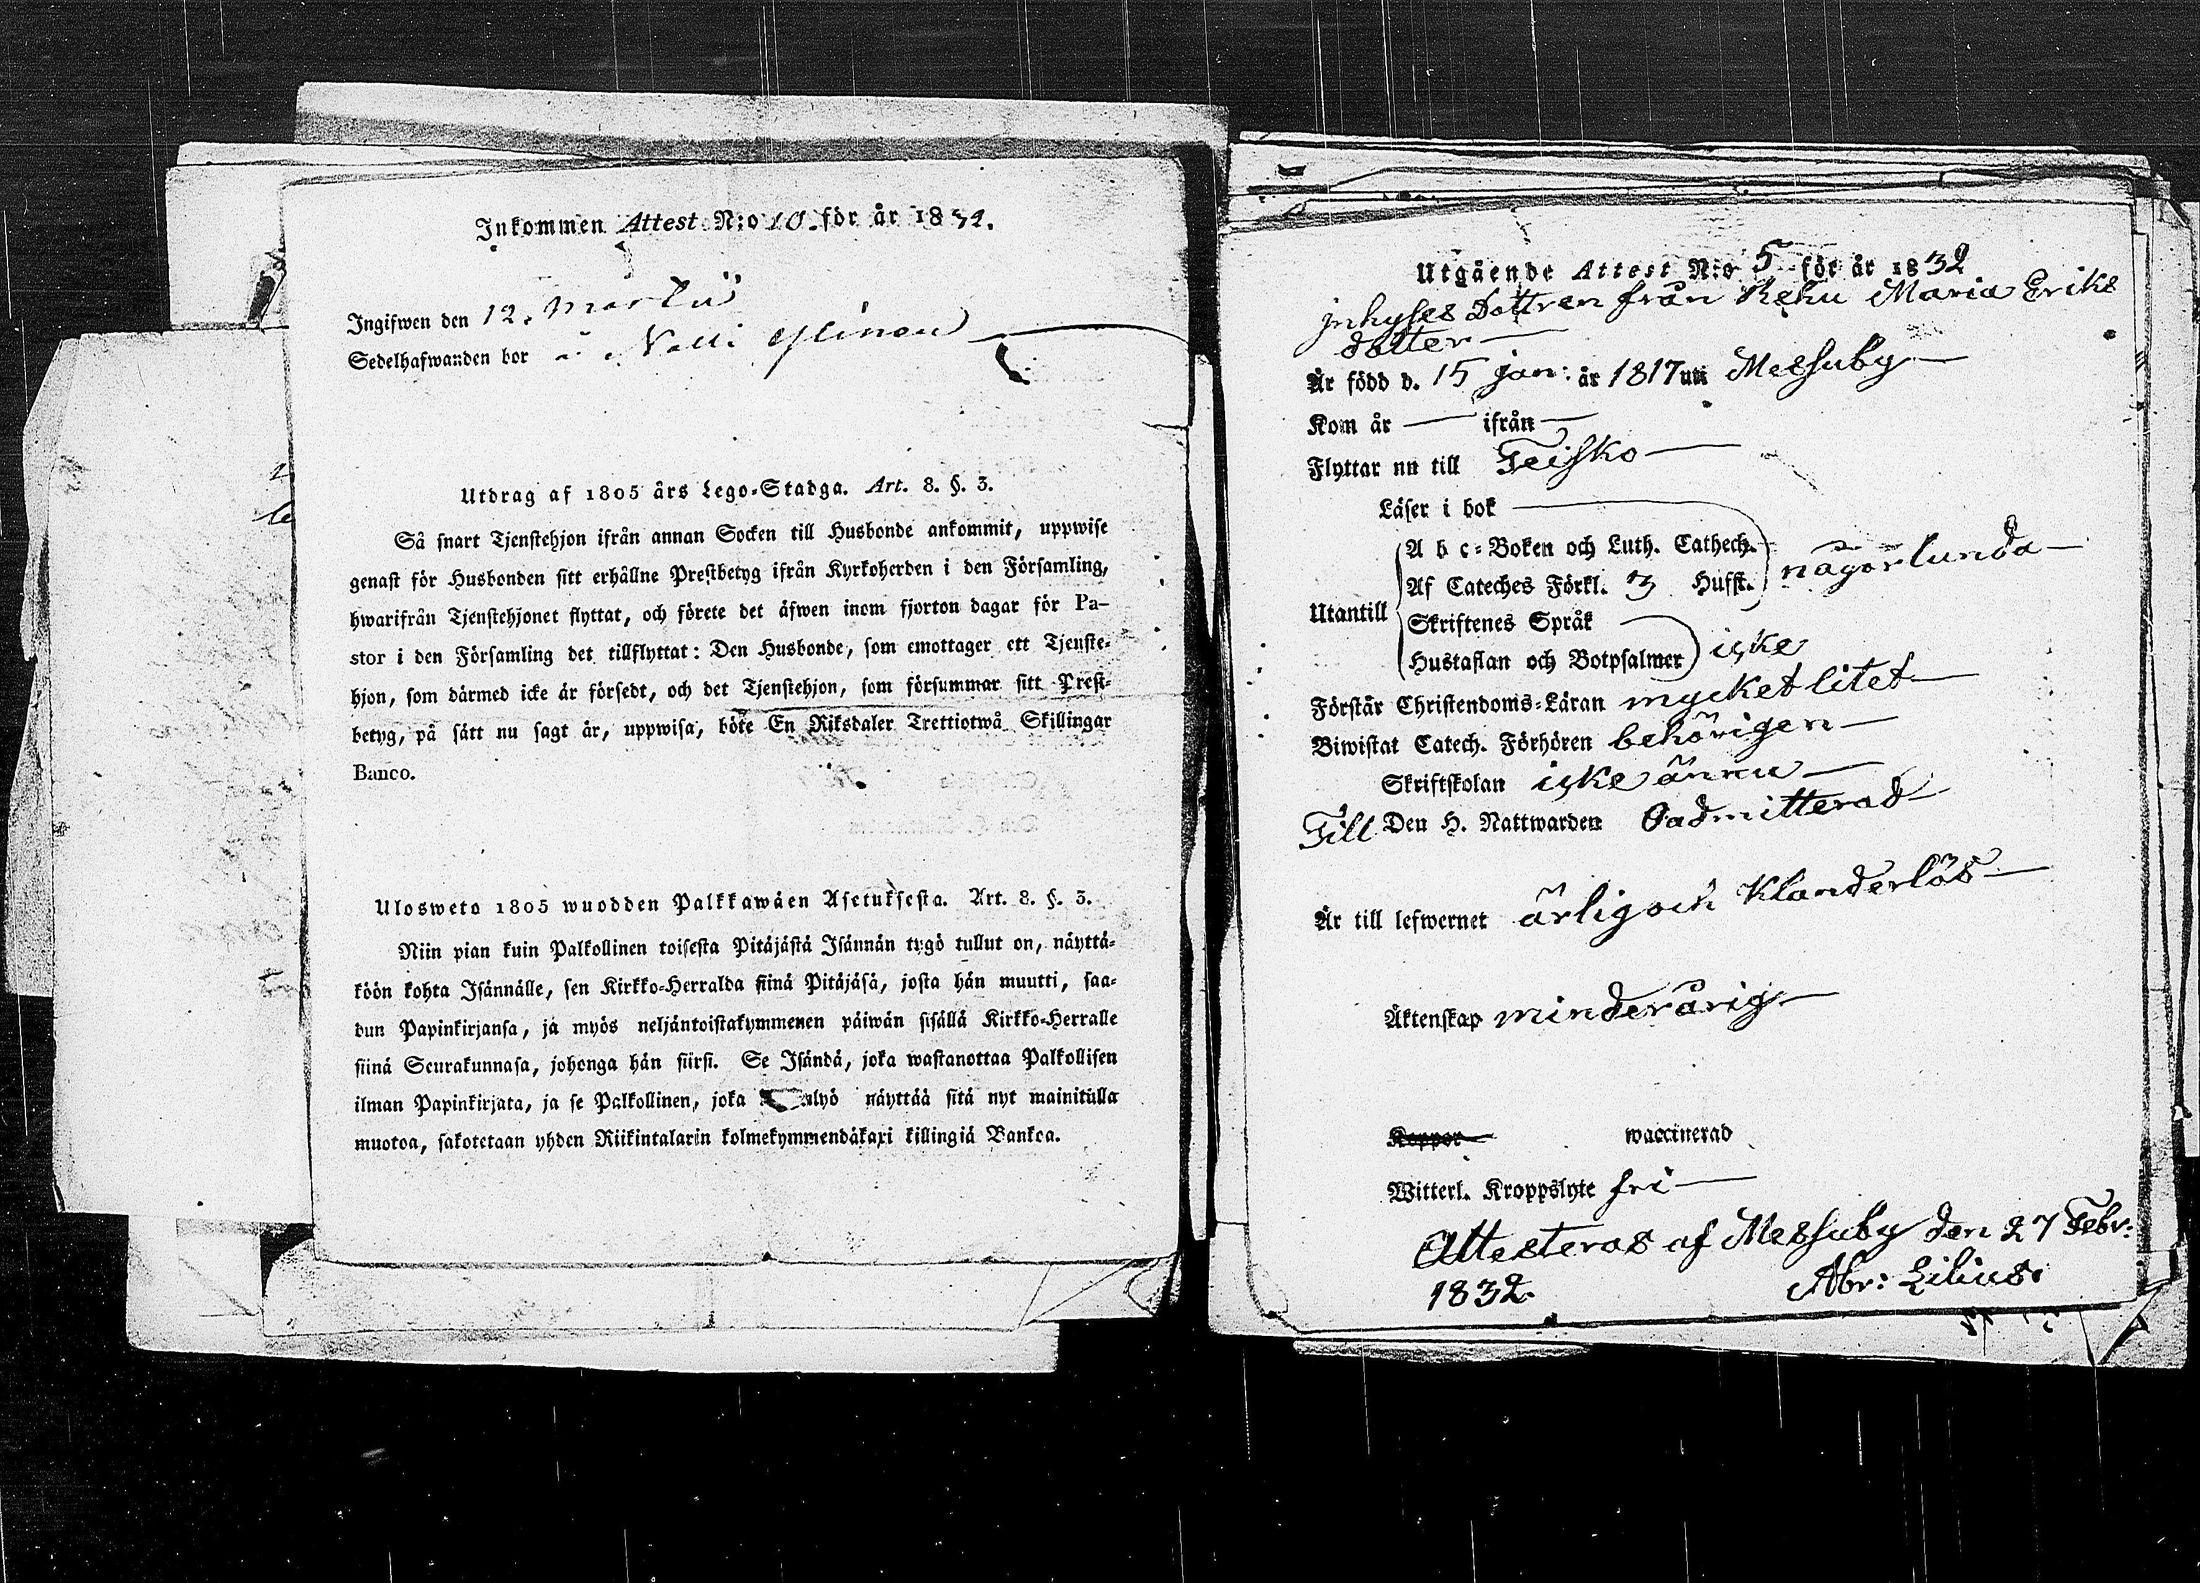 Inkommen Attest N:o 10. för år 1832.
Ingifwen den 12. Martii
Sedelhafwanden bor i Ylinen
Utdrag af 1805 års Lego-Stadga. Art. 8. §. 3.
Så snart Tjenstehjon ifrån annan Socken till Husbonde ankommit, uppwise
genast för Husbonden sitt erhållne Prestbetyg ifrån Kyrkoherden i den Församling,
hwarifrån Tjenstehjonet flyttat, och förete det äfwen inom fjorton dagar för Pa-
stor i den Församling det tillflyttat: Den Husbonde, som emottager ett Tjenste-
hjon, som därmed icke är försedt, och det Tjenstehjon, som försummar sitt Prest-
betyg, på sätt nu sagt är, uppwisa, böte En Riksdaler Trettiotwå Skillingar
Banco.
Ulosweto 1805 wuodden Palkkawäen Asetuksesta. Art. 8. §. 3.
Niin pian kuin Palkollinen toisesta Pitäjästä Isännän tygö tullut on, näyttä-
köön kohta Isännälle, sen Kirkko-Herralda siinä Pitäjäsä, josta hän muutti, saa-
dun Papinkirjansa, ja myös neljäntoistakymmenen päiwän sisällä Kirkko-Herralle
siinä Seurakunnasa, johonga hän siirsi. Se Isändä, joka wastanottaa Palkollisen
ilman Papinkirjata, ja se Palkollinen, joka näyttää sitä nyt mainitulla
muotoa, sakotetaan yhden Riikintalarin kolmekymmendäkaxi killingiä Bankoa.
Utgående Attest N:o 5 för år 1832
jnhyses Dottren från Rehu Maria Eriks
dotter
Är född d. 15 jan: år 1817 uti Messuby
Kom år ifrån
Flyttar nu till Teisko
Läser i bok
A b c-Boken och Luth. Cathech. någorlunda
Af Cateches Förkl. 3 Hufst.
Utantill
Skriftenes Språk
Hustaflan och Botpsalmer icke
Förstår Christendoms-Läran mycket litet
Biwistat Catech. Förhören behörigen
Skriftskolan icke ännu
Till Den H. Nattwarden Oadmitterad
Är till lefwernet ärlig och Klanderlös
Äktenskap minderårig
Koppor waccinerad
Witterl. Kroppslyte fri
Attesteras af Messuby den 27 Febr:
1832. Abr: Lilius.